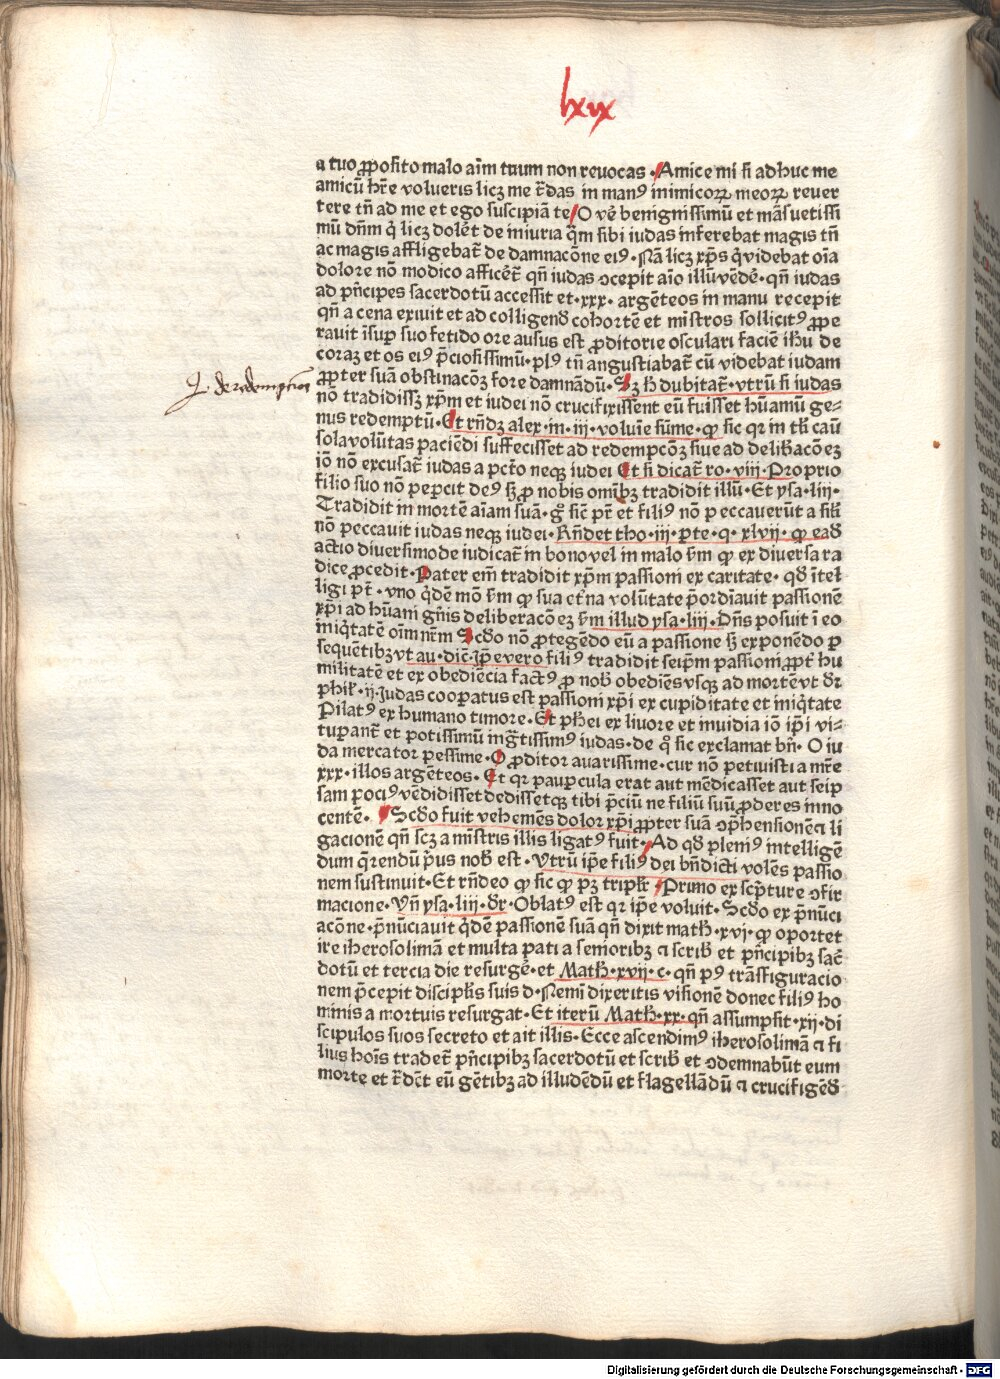 lxix
a tuo ꝓposito malo aīm tuum non reuocas · Amice mi si adhuc me
amicū hr̄e volueris licꝫ me tͬdas in manꝰ inimicoꝝ meoꝝ reuer
tere tn̄ ad me et ego suscipiā te O ve͂ benignissimū et mā̄suetissi
mū dn̄m q̄ licꝫ dolēt de iniuria qͫm sibi iudas inferebat magis tn̄
ac magis affligebat̄ de damnacōne eiꝰ · Nā licꝫ xp̄s q̄videbat oīa
dolore nō modico afficēt̄ qn̄ iudas ꝯcepit aīo illū vēdē · qn̄ iudas
ad pn̄cipes sacerdotū accessit et · xxx · argēteos in manu recepit
qn̄ a cena exiuit et ad colligend̄ cohortē et mīstros sollicitꝰ ꝓpe
rauit īsuꝑ suo fetido ore ausus est ꝓditorie osculari faciē ih̄u de
coraꝫ et os eiꝰ p̄ciosissimū · plꝰ tn̄ angustiabat̄ cū videbat iudam
ꝓpter suā obstinacōꝫ fore damnādū · Sꝫ h̄ dubitat̄ · vtrū si iudas
q̄. de redemptione
nō tradidissꝫ xp̄m et iudei nō crucifixissent eū fuisset hūanū ge-
nus redemptū · Et rn̄dꝫ alex · in · iij · voluīe sūme · ꝙ sic qꝛ in tli cāu
sola volūtas paciēdi suffecisset ad redempcōꝫ siue ad delibͣacōeꝫ
iō nō excusat̄ iudas a pctō neqꝫ iudei Et si dicat̄ ro · viij · Proprio
filio suo nō peꝑcit deꝰ sꝫ ꝓ nobis omībꝫ tradidit illū · Et ysa · liij ·
Tradidit in mortē aīam suā · gͦ sic pr̄ et filiꝰ nō peccauerūt a sili
nō peccauit iudas neqꝫ iudei · Rn̄det tho · iij · ꝑte · q · xlvij · ꝙ ead̄
actio diuersimode iudicat̄ in bono vel in malo s̄m ꝙ ex diuersa ra
dice ꝓcedit · Pater em̄ tradidit xp̄m passioni ex caritate · qd̄ ītel
ligi pt̄ · vno qͥdē mō s̄m ꝙ sua et̄na volūtate p̄ordīauit passionē
xp̄i ad hūani gn̄is deliberacōeꝫ s̄m illud ysa · liij · Dn̄s posuit ī eo
īniqͥtatē oīm nr̄m Scd̄o nō ꝓtegēdo eū a passione sꝫ exponēdo ꝑ
sequētibꝫ vt au · dic̄ · Ip̄e vero filiꝰ tradidit seip̄m passioni ꝓpt̄ hu
militatē et ex obediēcia factꝰ ꝓ nob̄ obediēs vsqꝫ ad mortē vt dr̄
phil̄ · ij · Judas cooꝑatus est passioni xp̄i ex cupiditate et īniqͥtate
Pilatꝰ ex humano timore · Et ph̄ei ex liuore et inuidia iō ip̄i vi-
tuperant̄ et potissimū īngͣtissimꝰ iudas · de qͦ sic exclamat bn̄ · O iu
da mercator pessime · O ꝓditor auarissime · cur nō petiuisti a mr̄e
xxx · illos argēteos · Et qꝛ paupercula erat aut mēdicasset aut seip
sam pociꝰ vēdidisset dedissetqꝫ tibi p̄ciū ne filiū suū ꝓderes inno
centē · Scd̄o fuit vehemēs dolor xp̄i ꝓpter suā ꝯp̄hensionē ⁊ li
gacionē qn̄ scꝫ a mīstris illis ligatꝰ fuit · Ad qd̄ pleniꝰ intelligē
dum qͣrendū pͥus nob̄ est · Vtrū ip̄e filiꝰ dei bn̄dicti volēs passio
nem sustinuit · Et rn̄deo ꝙ sic ꝙ pꝫ triplr̄ Primo ex scͥpture ꝯfir
macione · Vn̄ ysa · liij · dr̄ · Oblatꝰ est qꝛ ip̄e voluit · Scd̄o ex p̄nūci
acōne · p̄nūciauit qͥdē passionē suā qn̄ dixit math̄ · xvj · ꝙ oportet
ire iherosolimā et multa pati a seniorībꝫ ⁊ scrib̄ et pn̄cipibꝫ sac̄
dotū et tercia die resurgē · et Math̄ · xvij · c · qn̄ pꝰ trāsfiguracio
nem p̄cepit discipl̄is suis d · Nemī dixeritis visionē donec filiꝰ ho
minis a mortuis resurgat · Et iterū Math̄ · xx · qn̄ assumpsit · xij · di
scipulos suos secreto et ait illis · Ecce ascendimꝰ iherosolimā ⁊ fi
lius hoīs tradet̄ pn̄cipibꝫ sacerdotū et scrib̄ et ꝯdemnabūt eum
morte et tͬdēt eū gētibꝫ ad illudēdū et flagellādū ⁊ crucifigēd̄
Digitalisierung gefördert durch die Deutsche Forschungsgemeinschaft · DFG